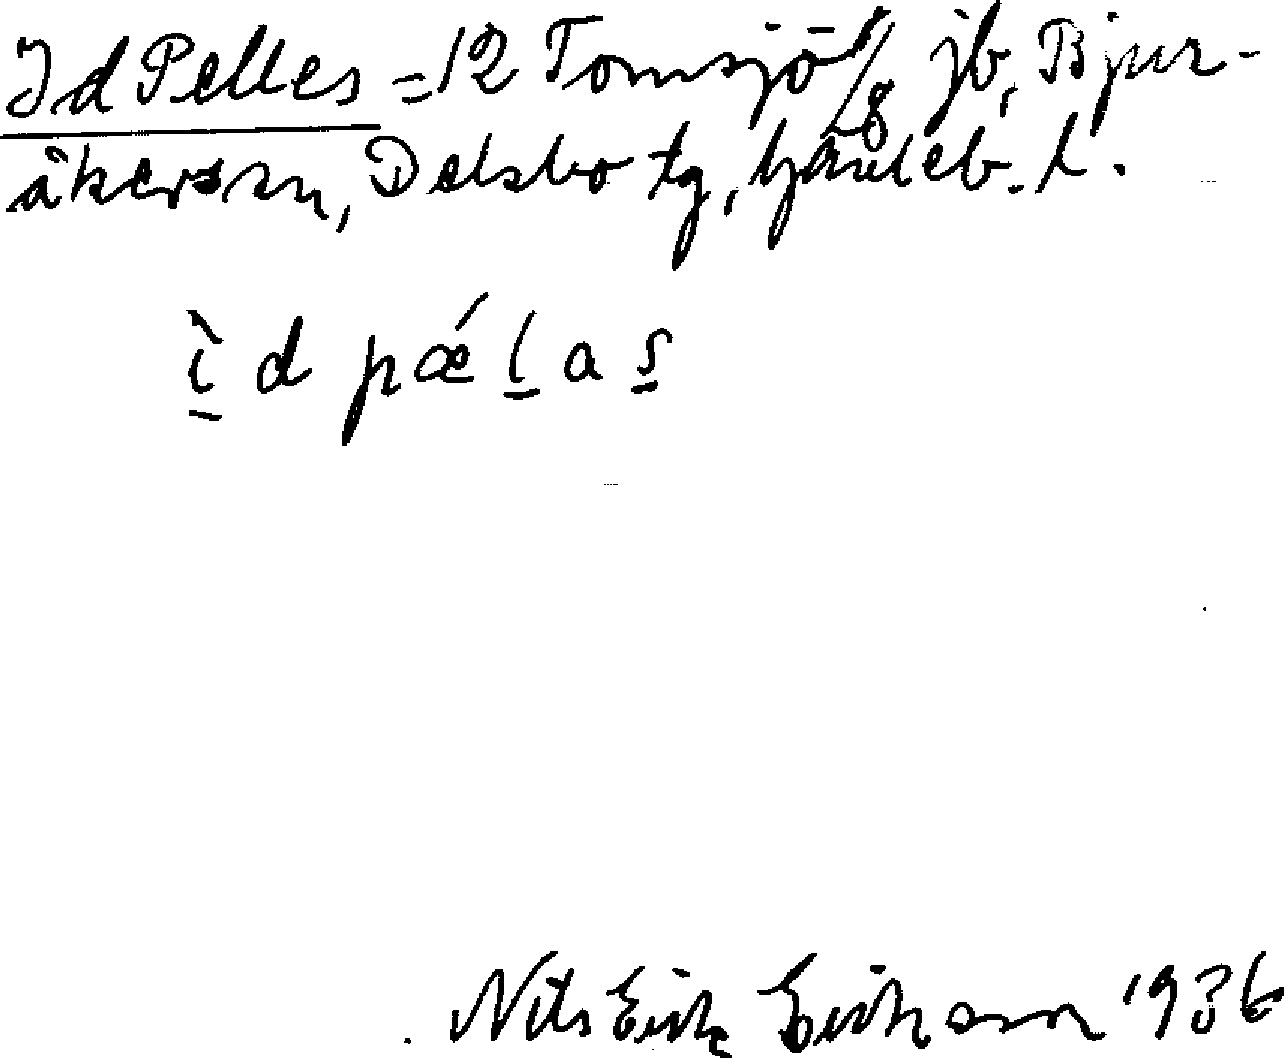 Id Pelles = 12 Tomsjö jb, Bjur-
åkers sn, Delsbo tg, Gävleb. l.
ì d pǽ l a s
Nils Erik Eriksson 1936